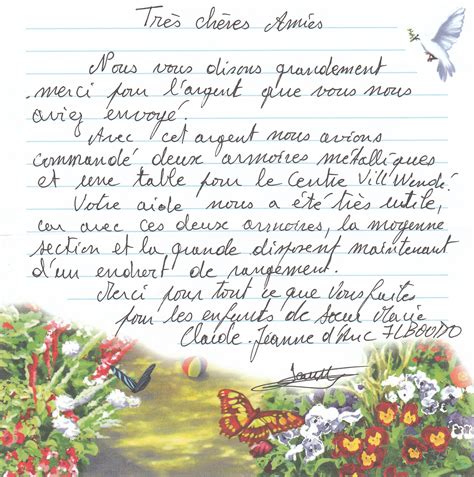 Très chères Amies
Nous vous disons grandement
merci pour l'argent que vous nous
aviez envoyé.
Avec cet argent nous avions
commandé deux armoires métalliques
et une table pour le Centre Vill'Wendé.
Votre aide nous a été très utile,
car avec ces deux armoires, la moyenne
section et la grande disposent maintenant
d'un endroit de rangement.
Merci pour tout ce que vous faites
pour les enfants de Soeur Marie
Claude. Jeanne d'Arc ILBOUDO